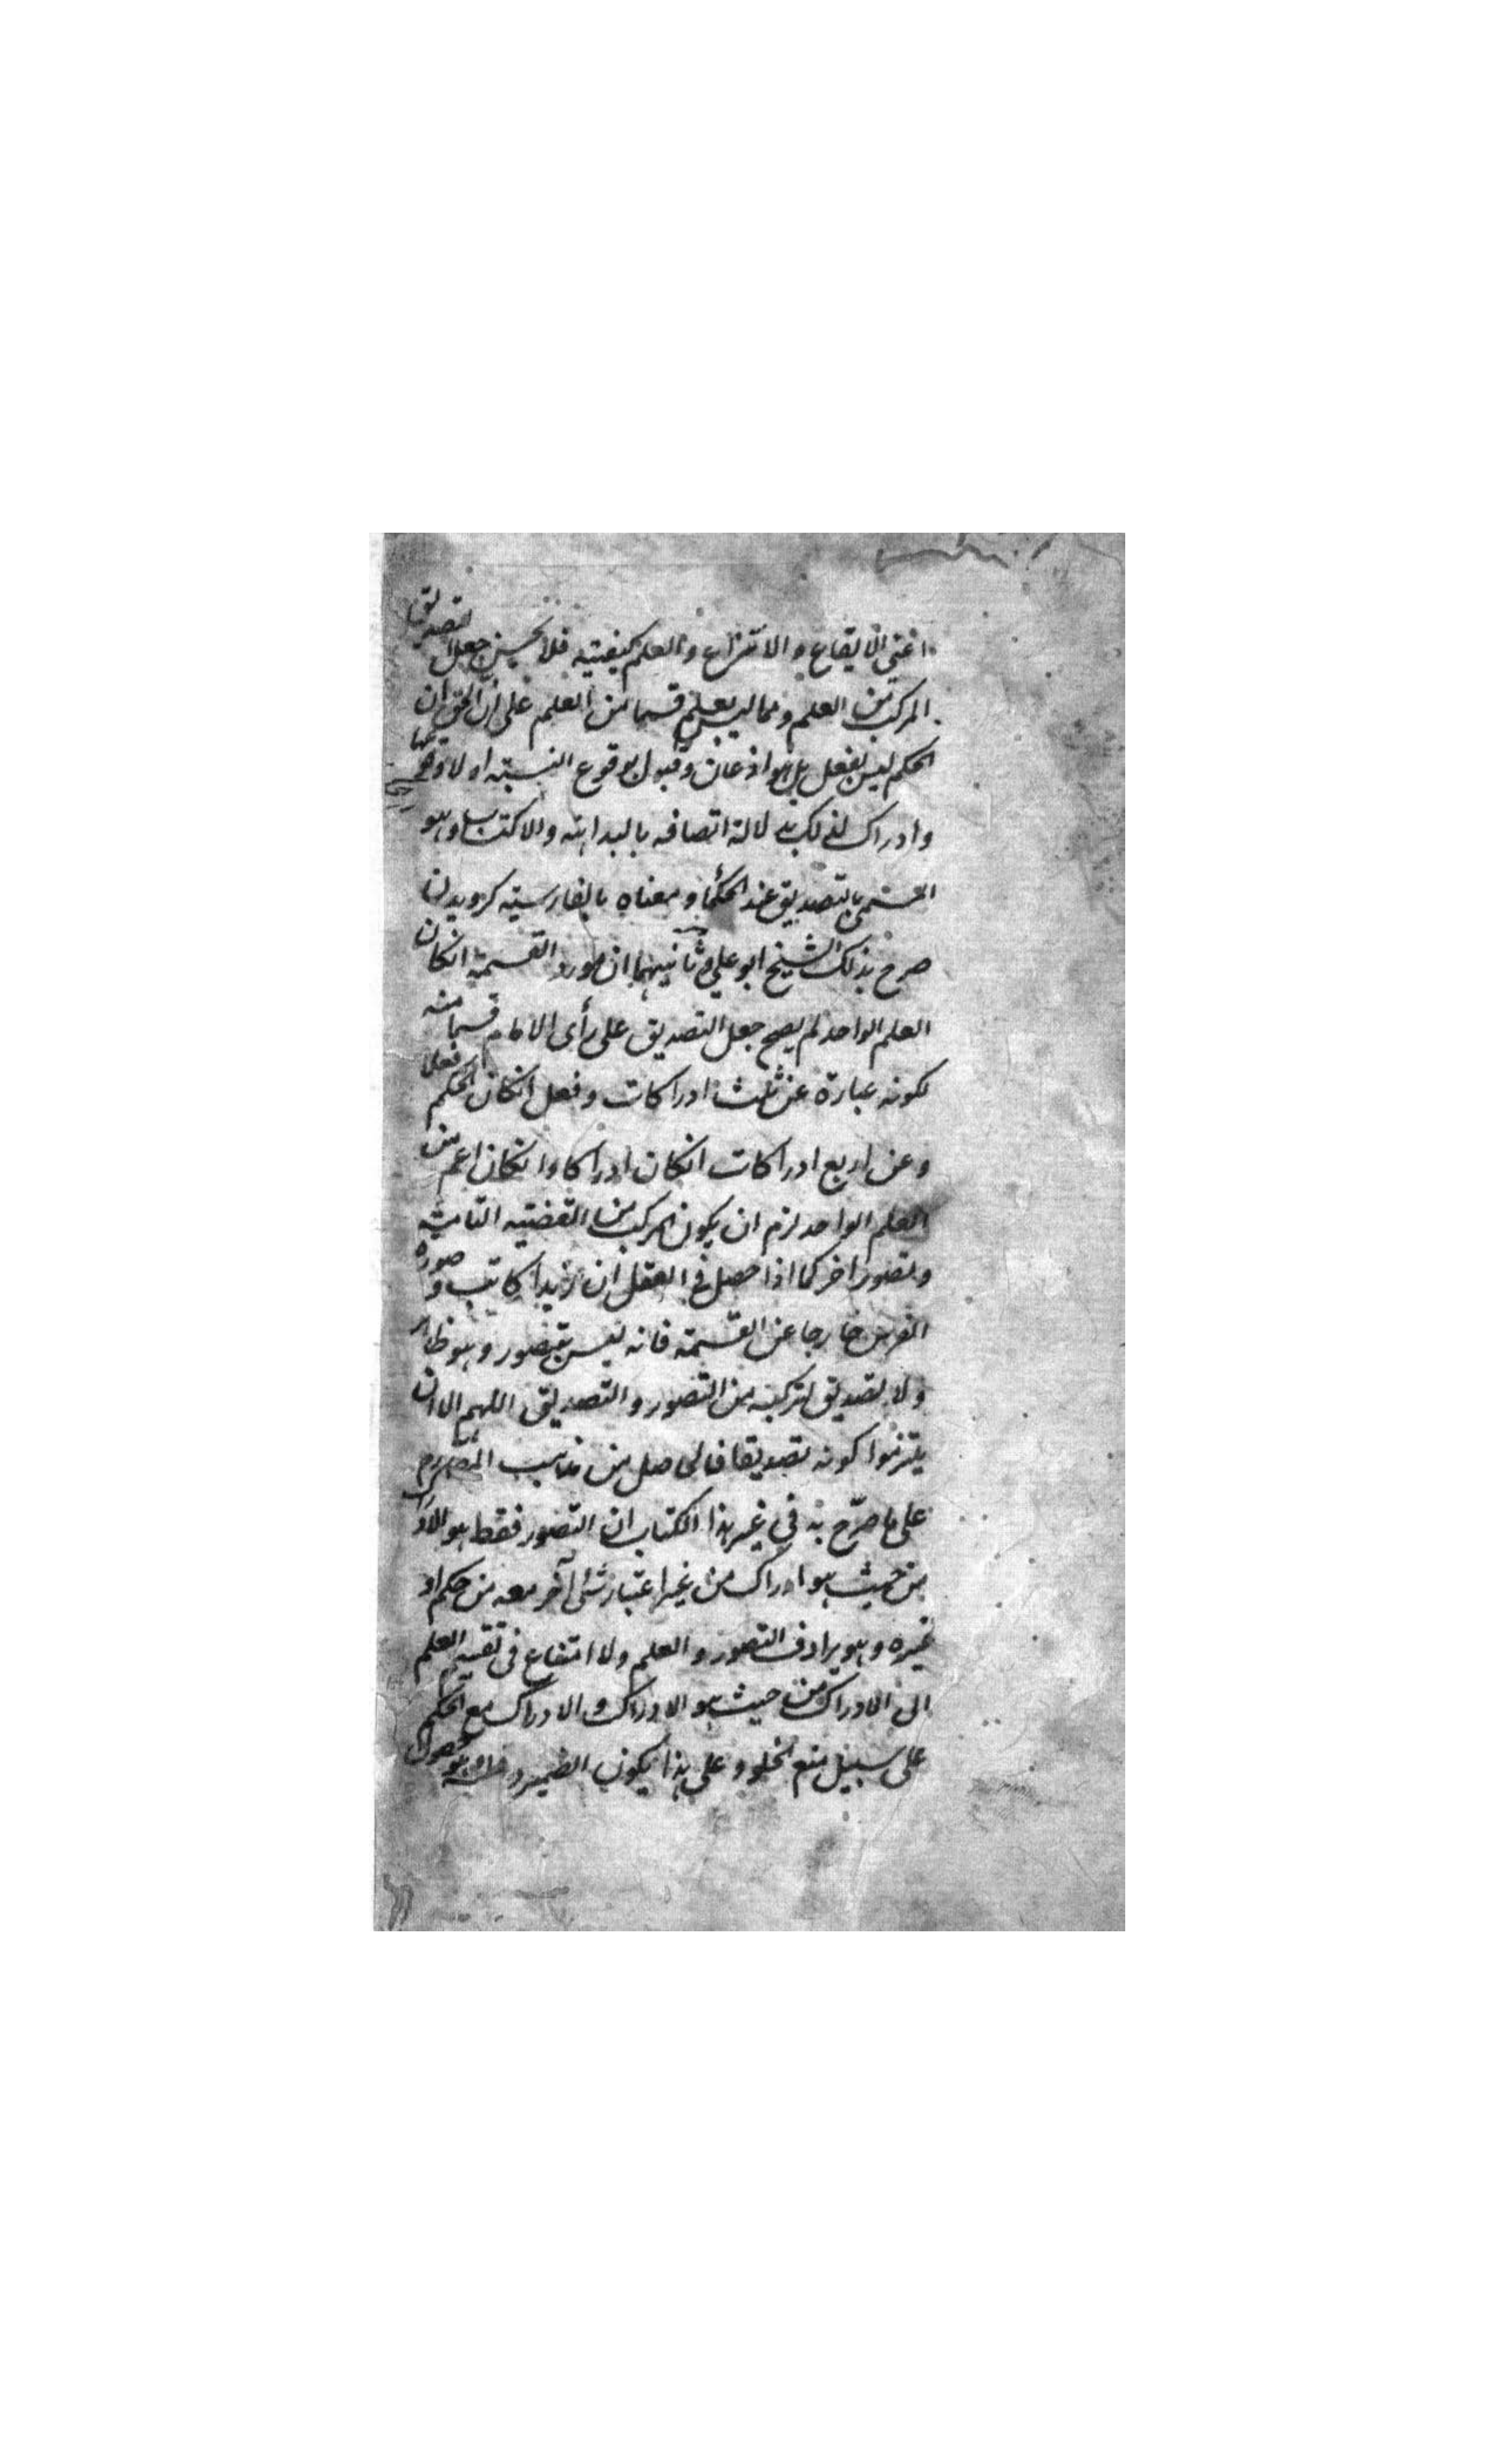 اعنى الايقاع والانتزاع والعلم كيفيته فلا يحسن جعل التصديق
المركب من العلم ومما ليس بعلم قسما من العلم على ان الحق ان
الحكم ليس بفعل بل هو اذعان وقبول بوقوع النسبة او لا وقوعها
وادراك لذلك بدلالة اتصافه بالبداهة والاكتساب وهو
المسمى بالتصديق عند الحكما ومعناه بالفارسية كرويدن
صرح بذلك الشيخ ابو على وثانيهما ان مورد القسمة انكان
العلم الواحد لم يصح جعل التصديق على رأى الامام قسما منه
لكونه عبارة عن ثلث ادراكات وفعل انكان الحكم فعلا
وعن اربع ادراكات انكان ادراكا وانكان اعم من
العلم الواحد لزم ان يكون المركب من القضية التامة
وتصور اخر كما اذا حصل فى العقل ان زيدا كاتب و صورة
الفرس خارجا عن القسمة فانه ليس بتصور وهو ظاهر
ولا تصديق لتركبه من التصور والتصديق اللهم الا ان
يلتزموا كونه تصديقا فالحاصل من مذاهب المص
على ما صرّح به فى غير هذا الكتاب ان التصور فقط هو الادراك
من حيث هو ادراك من غير اعتبار شئ آخر معه من حكم او
غيره وهو يرادف التصور والعلم ولا امتناع فى تقسيم العلم
الى الادراك من حيث هو الادراك والادراك مع الحكم
على سبيل منع الخلو وعلى هذا يكون الضمير فى وهو حصول